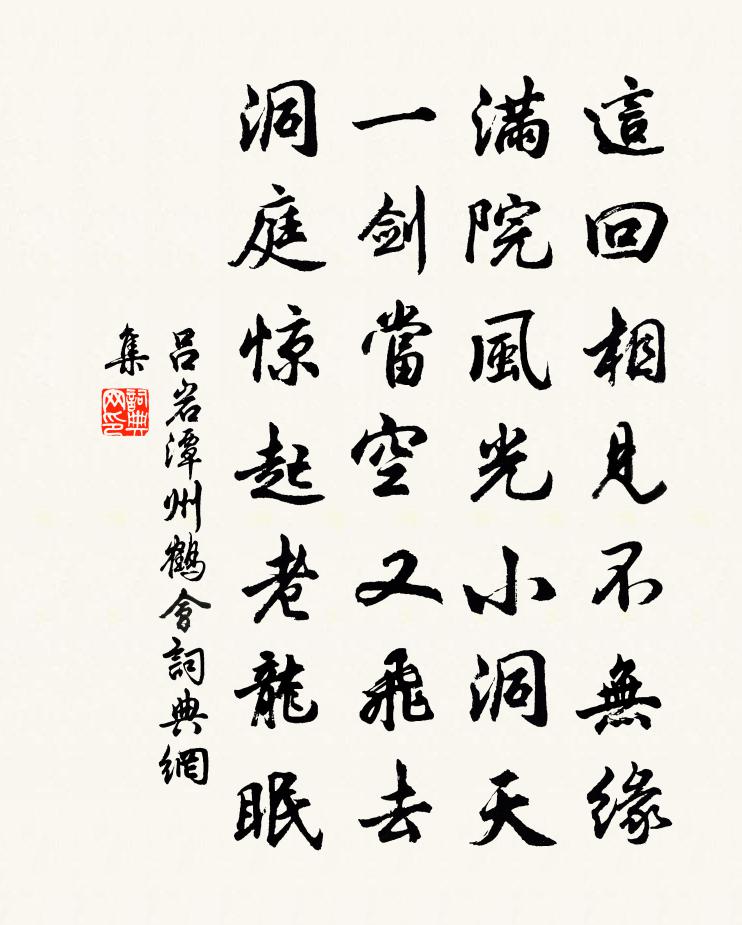 這回相見不無緣
滿院風光小洞天
一劍當空又飛去
洞庭惊起老龍眠
吕岩潭州鶴會詞典網
集
詞典
网印